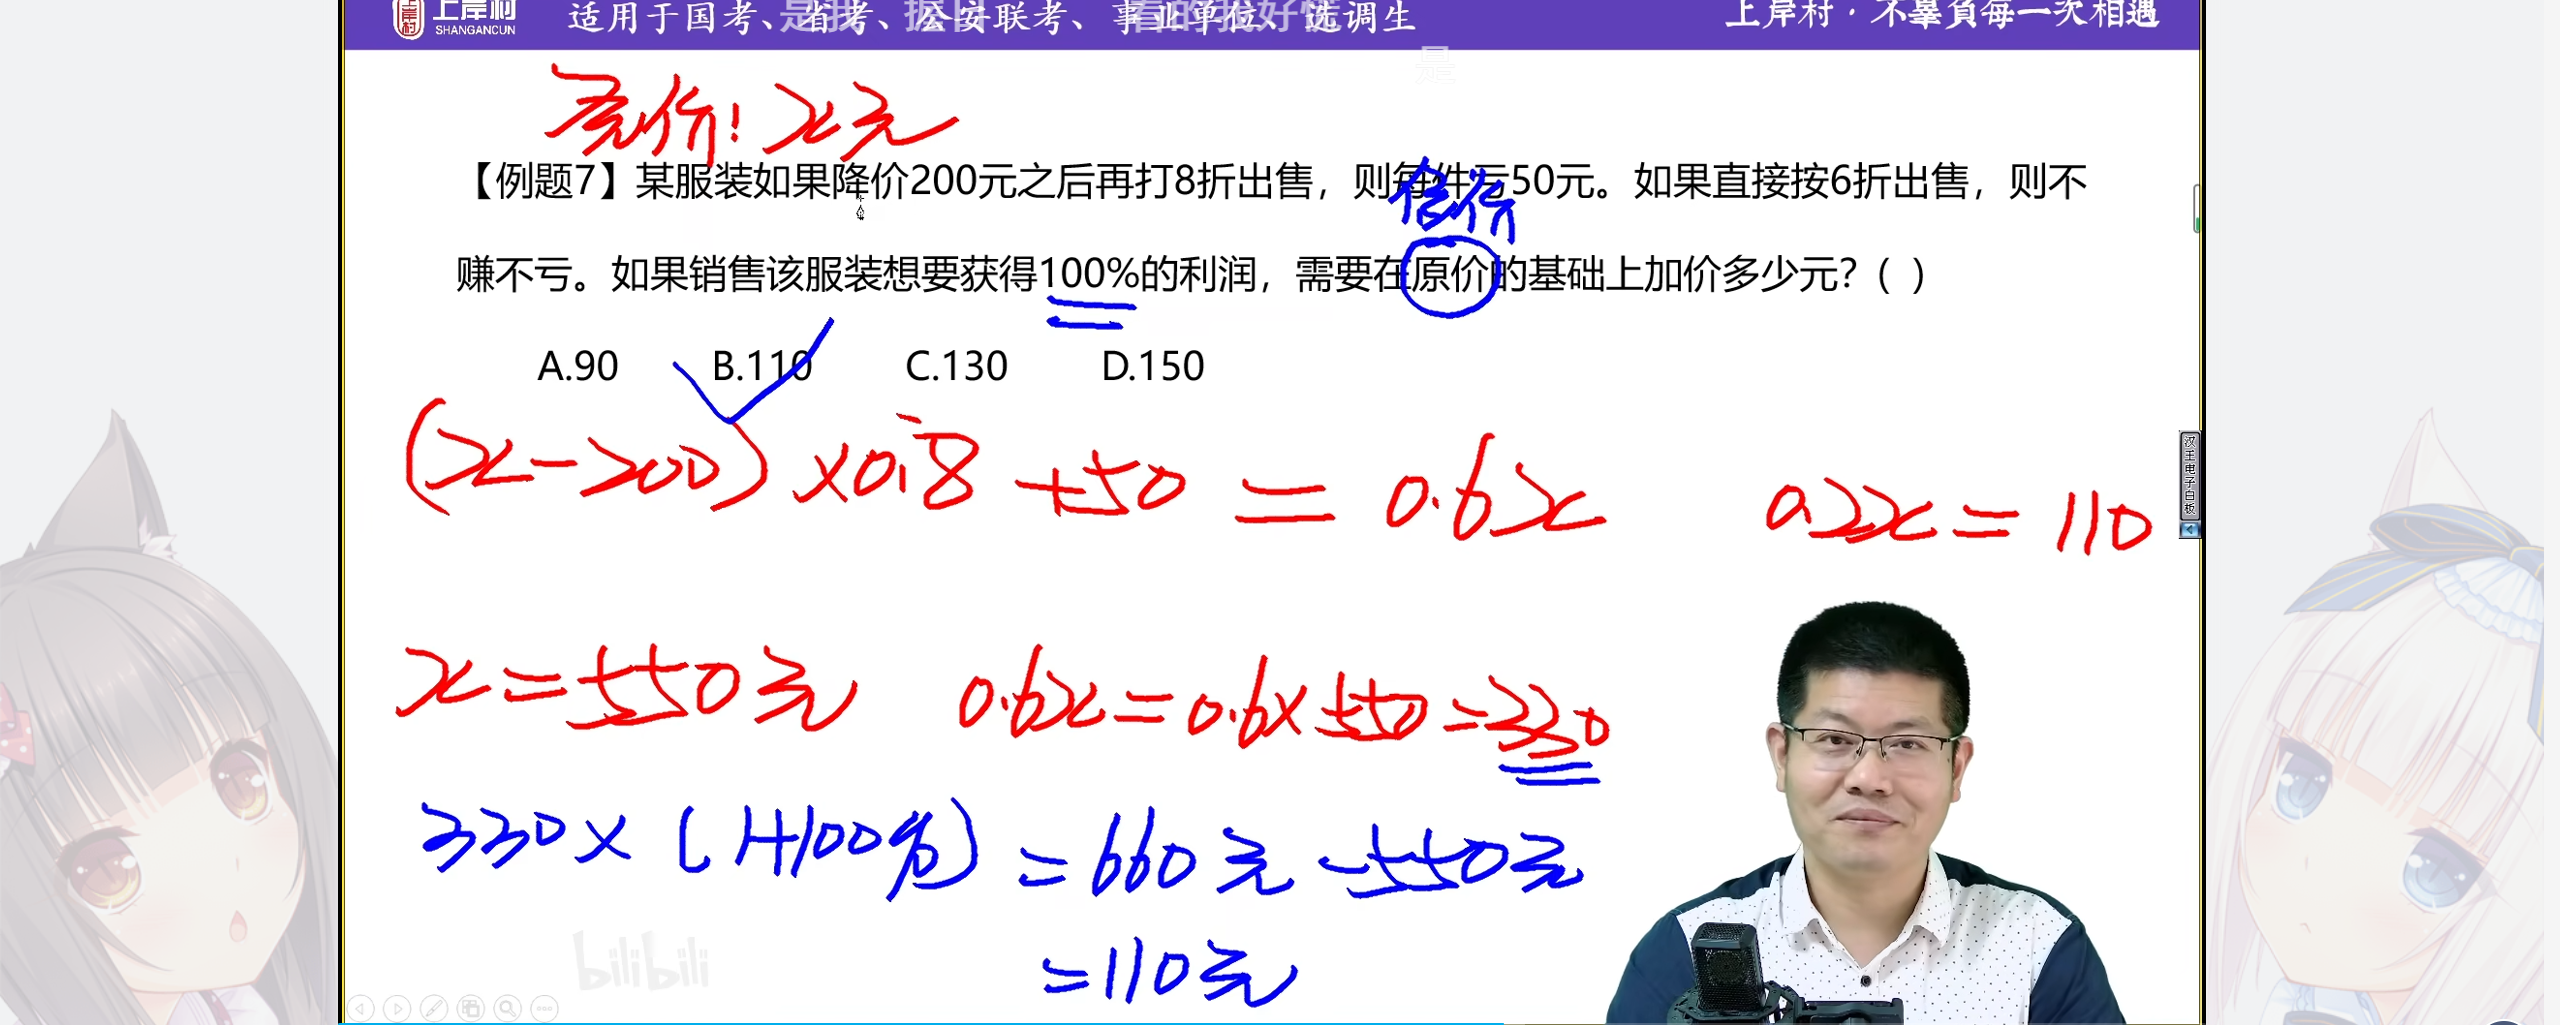 上岸村 SHANGANCUN 适用于国考、省考、公安联考、事业单位、选调生 上岸村·不辜負每一次相遇
是
x元
【例题7】某服装如果降价200元之后再打8折出售，则每件亏50元。如果直接按6折出售，则不
售价
赚不亏。如果销售该服装想要获得100%的利润，需要在原价的基础上加价多少元？( )
A.90 B.110 C.130 D.150
(x-200)×0.8+50=0.6x 0.2x=110
汉王电子白板
x=550元 0.6x=0.6×550=330
330×(1+100%)=660元-550元
=110元
bilibili